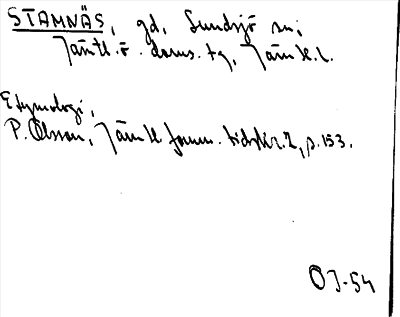 STAMNÄS, gd, Sundsjö sn;
Jämtl. ö. doms. tg, Jämtl. l.
Etymologi,
P. Olsson, Jämtl. fornm. tidskr. 2, p. 153.
OJ-54